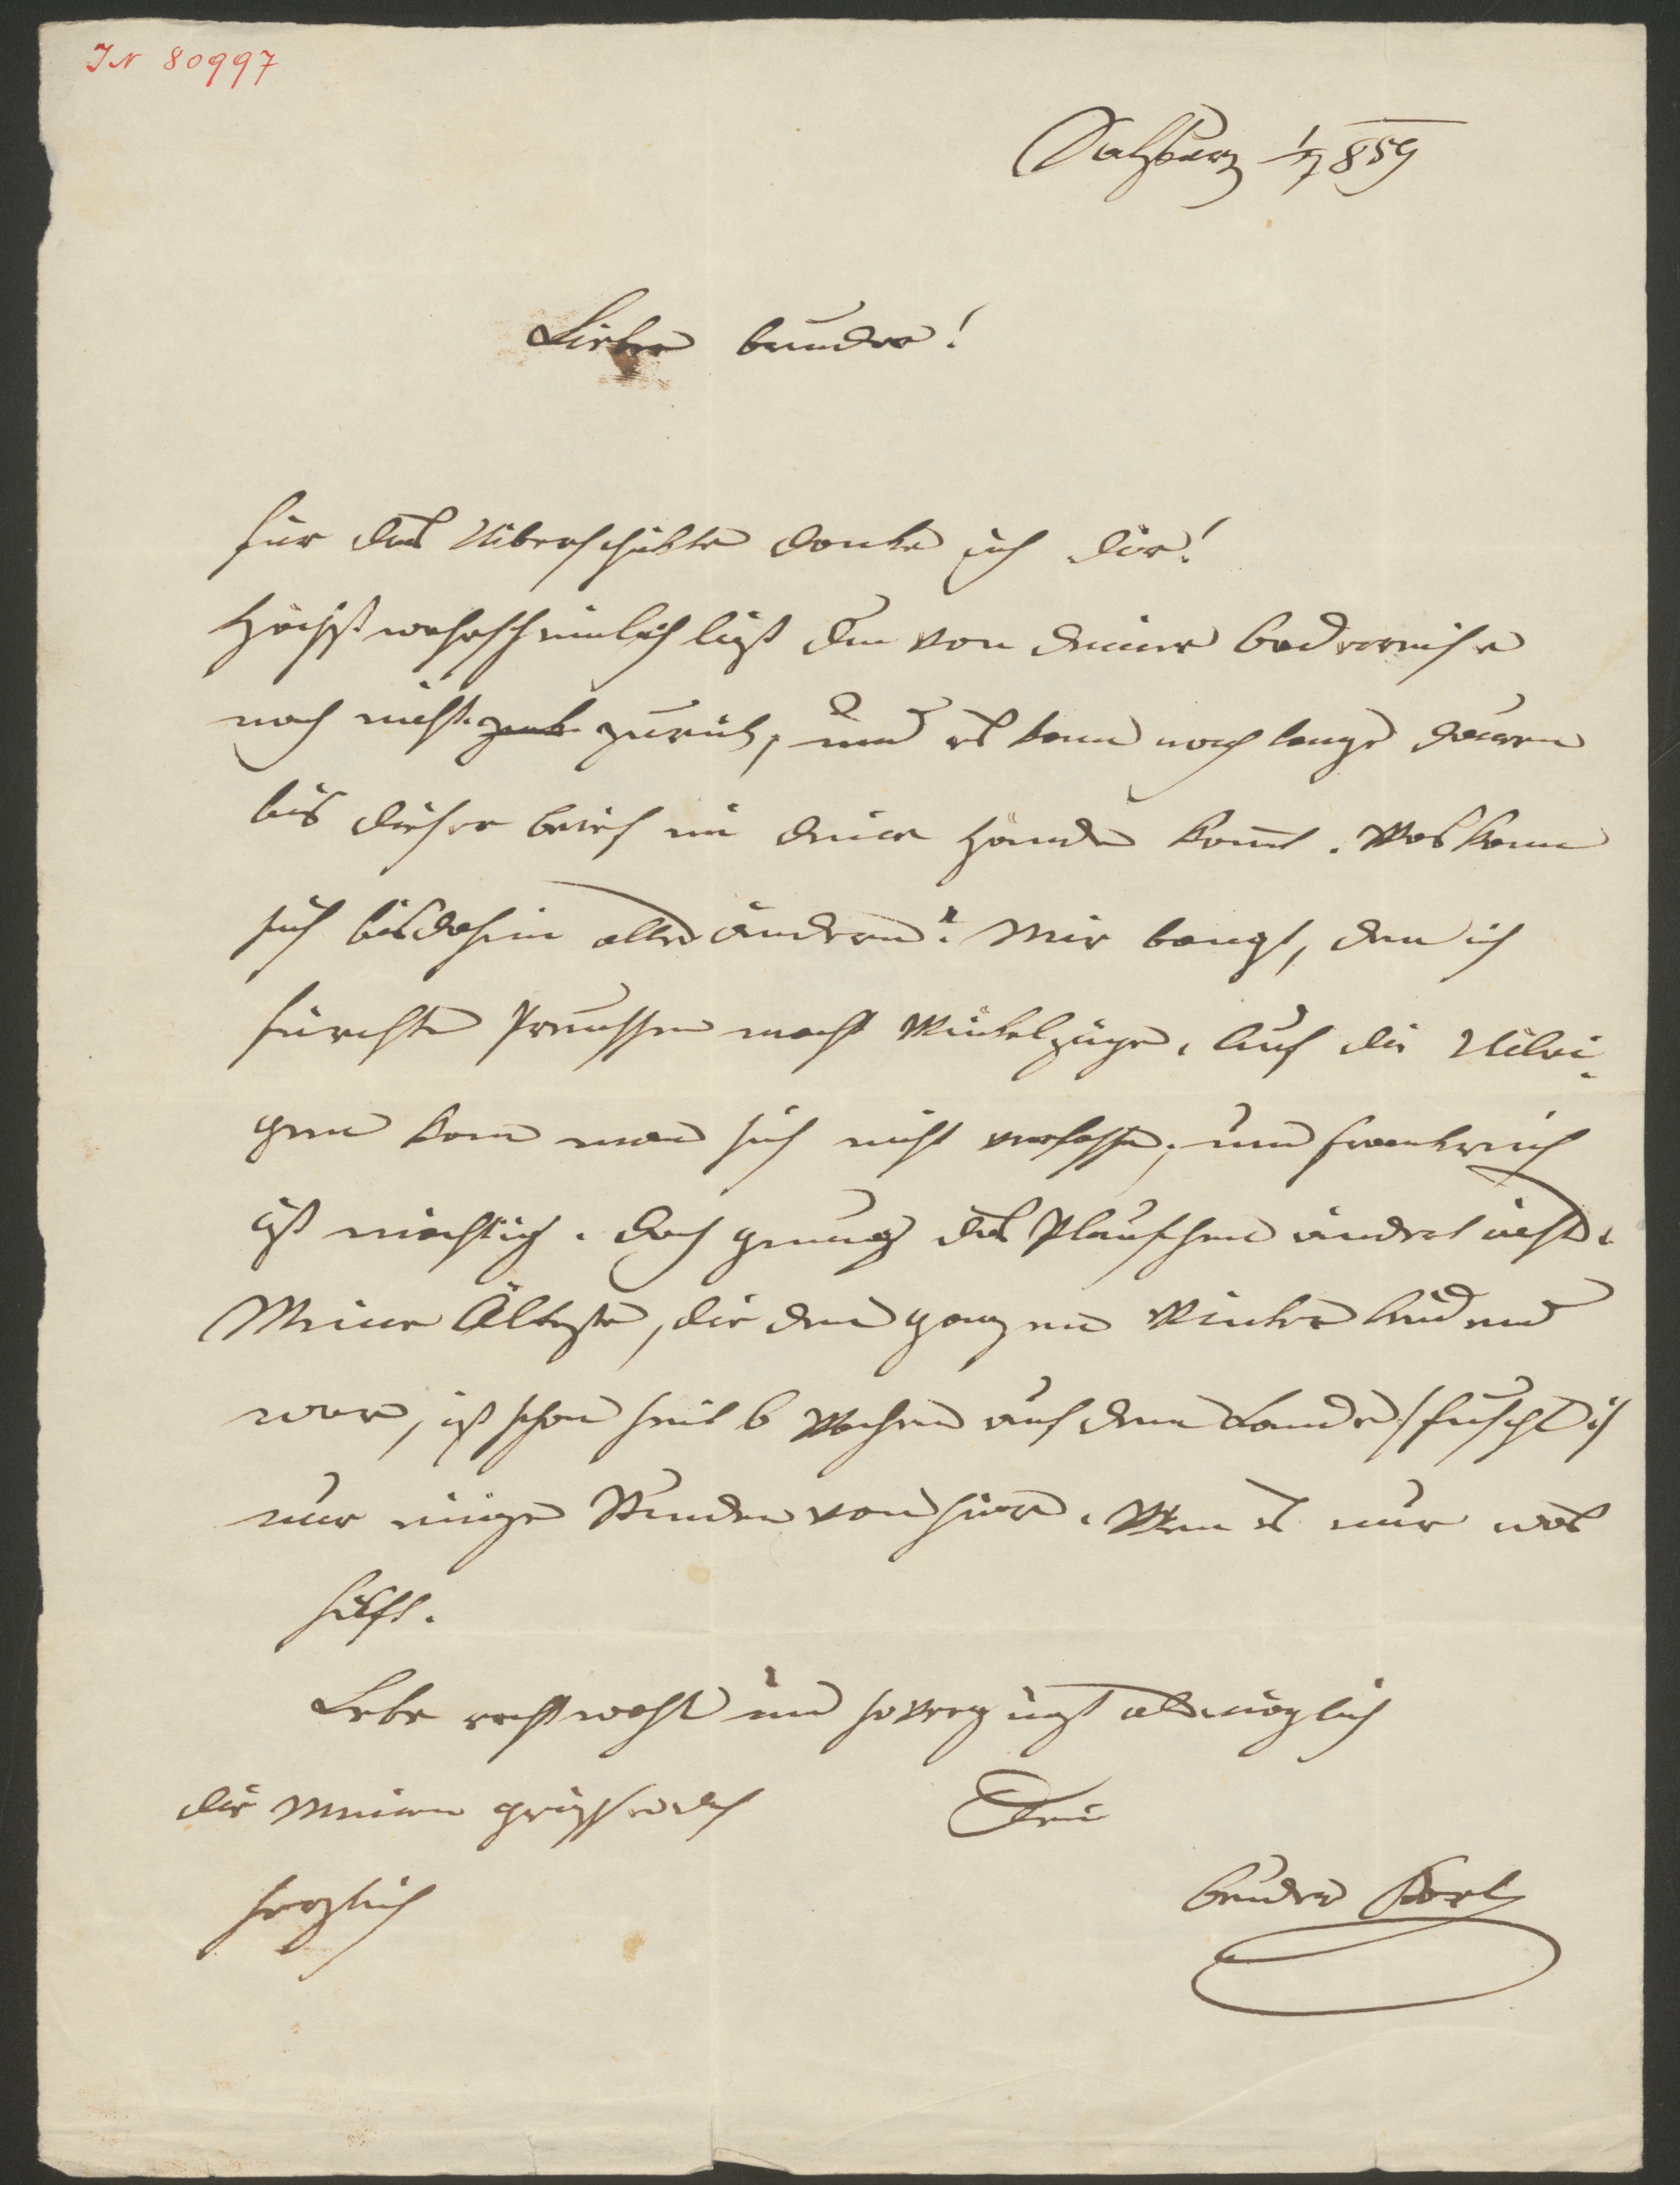 IN 80997
Salzburg 1/7 859
Lieber Bruder!
Für das Uiberschikte danke ich dir!
Höchst wahrscheinlich bist du von deiner Badereise
noch nicht zurük, und es kann noch lange dauern
bis dieser Brief in deine Hände kommt. Was kann
sich bis dahin alles ändern? Mir bangt, denn ich
fürchte Preussen macht Winkelzüge. Auf die Uibri-
gen kann man sich nicht verlassen; und Frankreich
ist mächtig. Doch genug das Plauschen ändert nichts.
Meine Älteste, die den ganzen Winter leidend
war, ist schon seit 6 Wochen auf dem Lande /: :/
nur einige Stunden von hier. Wenn es nur was
hilft.
Lebe recht wohl und so vergnügt als möglich
die Meinen grüssen dich
Dein
herzlich
Bruder Karl